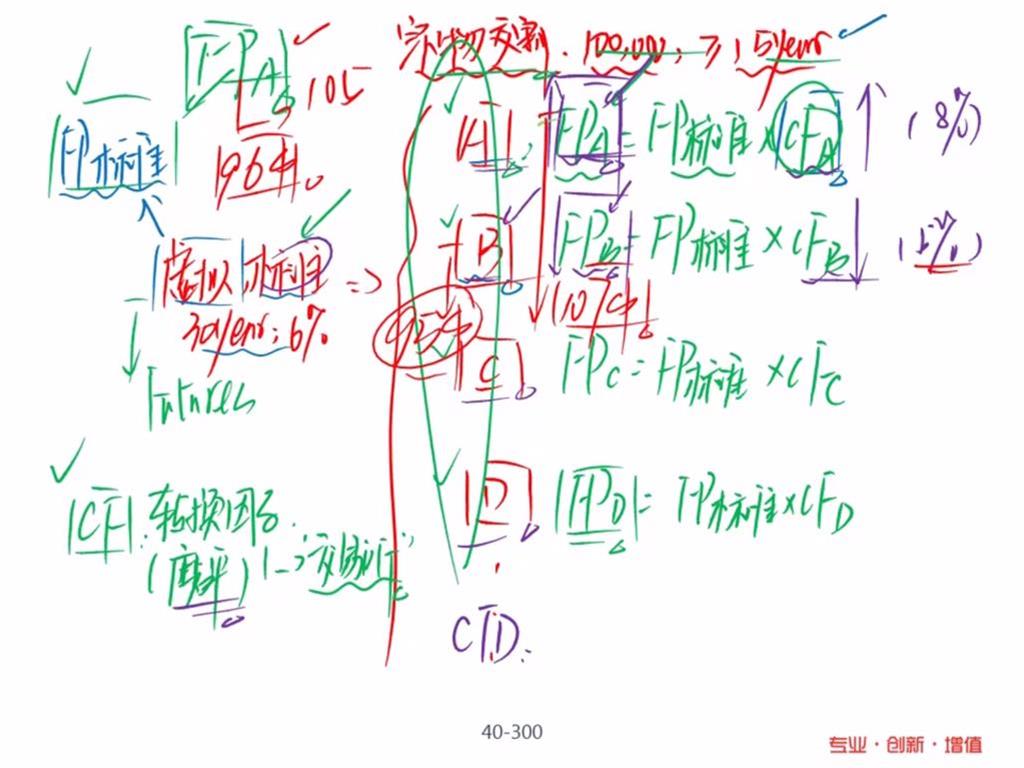 FPA 105
实物交割. 100,000; ≥15year
FP标准
A: FPA = FP标准 × CFA (8%)
B FPB = FP标准 × CFB
虚拟 标准 =>
30year; 6%
Futures
C FPC = FP标准 × CFC
CF: 转换因子
D FPD = FP标准 × CFD
CTD:
40-300
专业·创新·增值